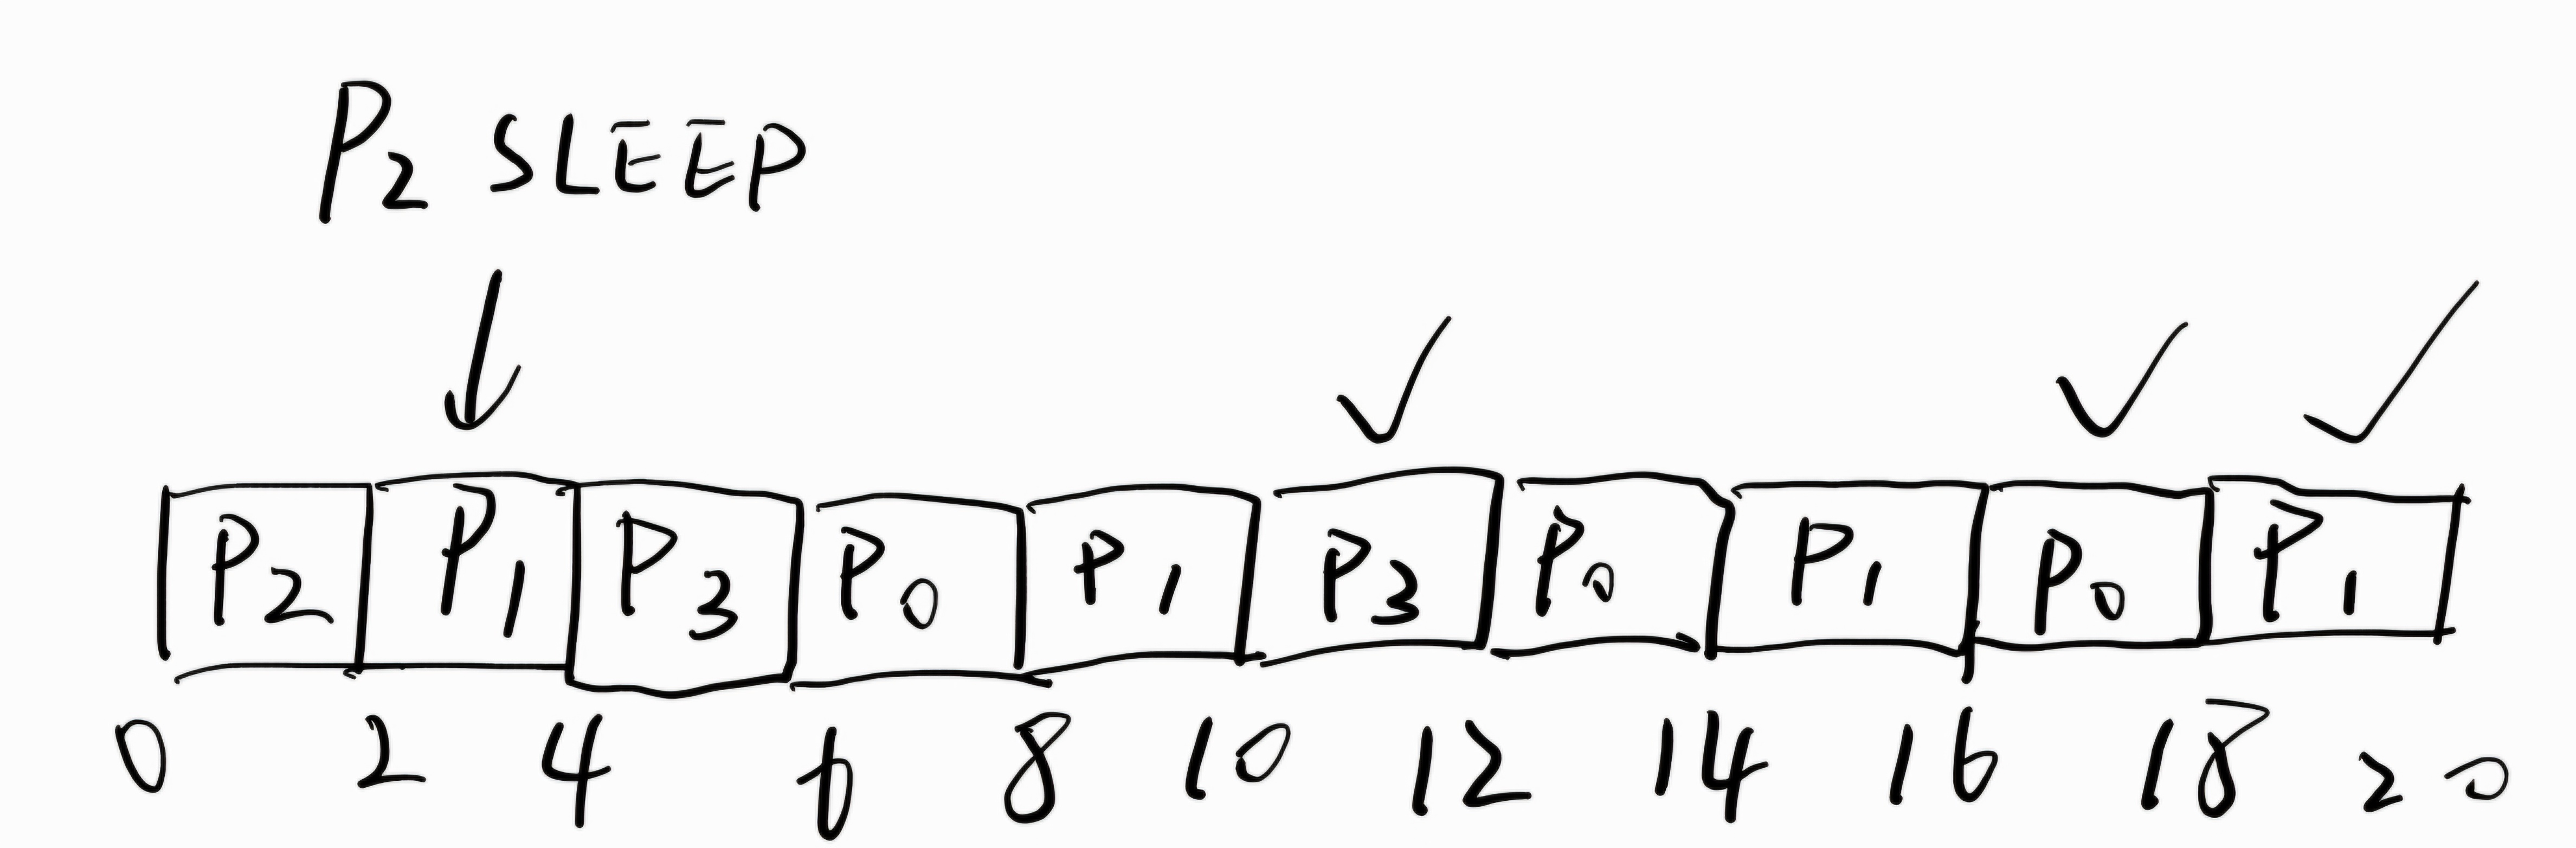 P₂ SLEEP
P₂ P₁ P₃ P₀ P₁ P₃ P₀ P₁ P₀ P₁
0 2 4 6 8 10 12 14 16 18 20